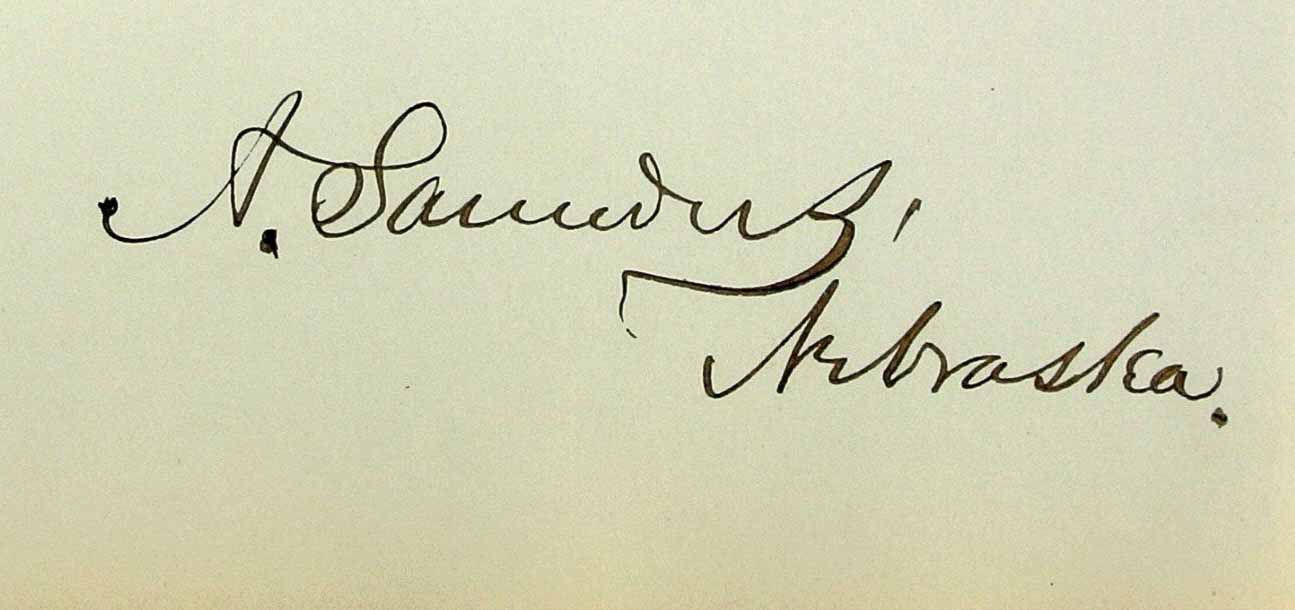 A. Saunders,
Nebraska.